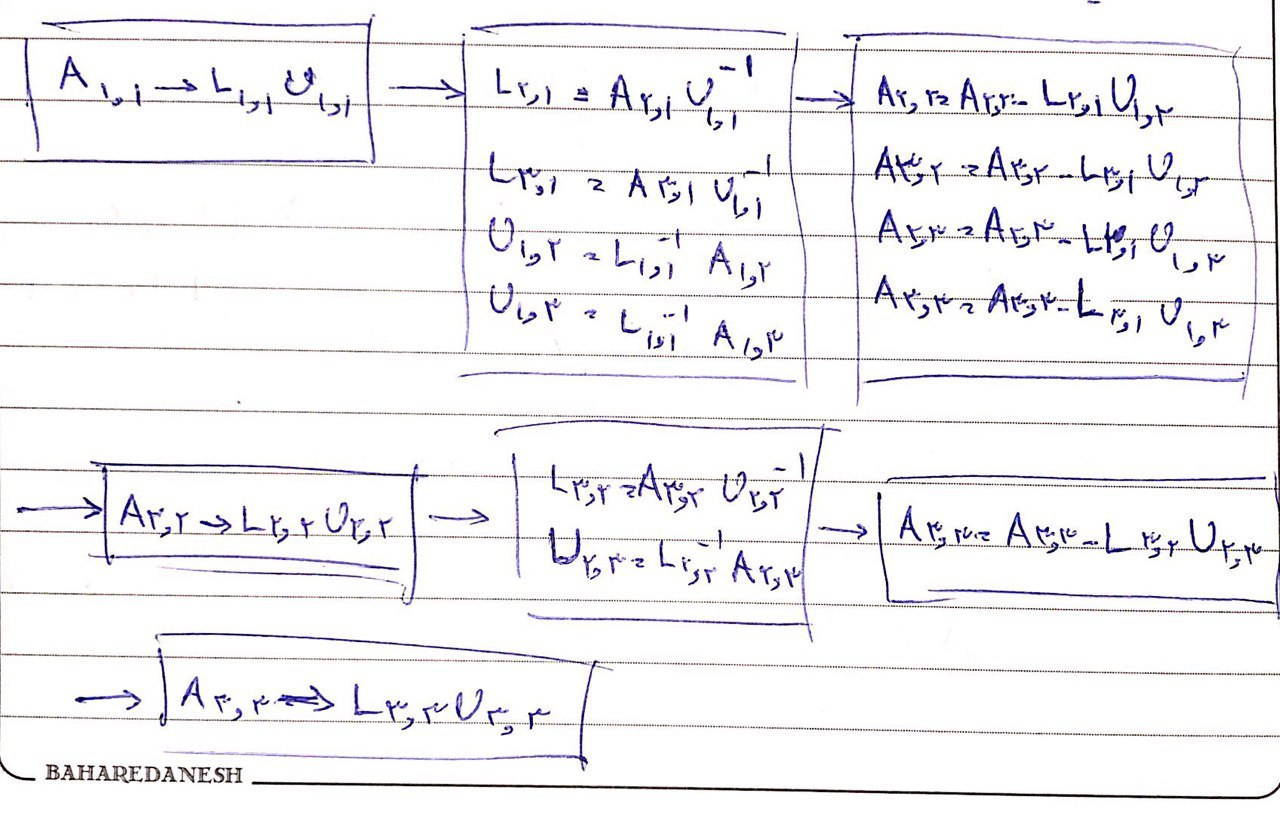 A۱,۱ → L۱,۱ U۱,۱ →
L۲,۱ = A۲,۱ U۱,۱⁻¹
L۳,۱ = A۳,۱ U۱,۱⁻¹
U۱,۲ = L۱,۱⁻¹ A۱,۲
U۱,۳ = L۱,۱⁻¹ A۱,۳
→
A۲,۲ = A۲,۲ - L۲,۱ U۱,۲
A۳,۲ = A۳,۲ - L۳,۱ U۱,۲
A۲,۳ = A۲,۳ - L۲,۱ U۱,۳
A۳,۳ = A۳,۳ - L۳,۱ U۱,۳
→ A۲,۲ → L۲,۲ U۲,۲ →
L۳,۲ = A۳,۲ U۲,۲⁻¹
U۲,۳ = L۲,۲⁻¹ A۲,۳
→ A۳,۳ = A۳,۳ - L۳,۲ U۲,۳
→ A۳,۳ → L۳,۳ U۳,۳
BAHAREDANESH